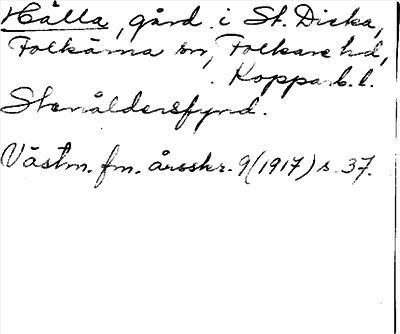 Hälla, gård i St. Dicka,
Folkärna sn, Folkare hd,
Koppab. l.
Stenåldersfynd.
Västm. fm. årsskr. 9 (1917) s. 37.